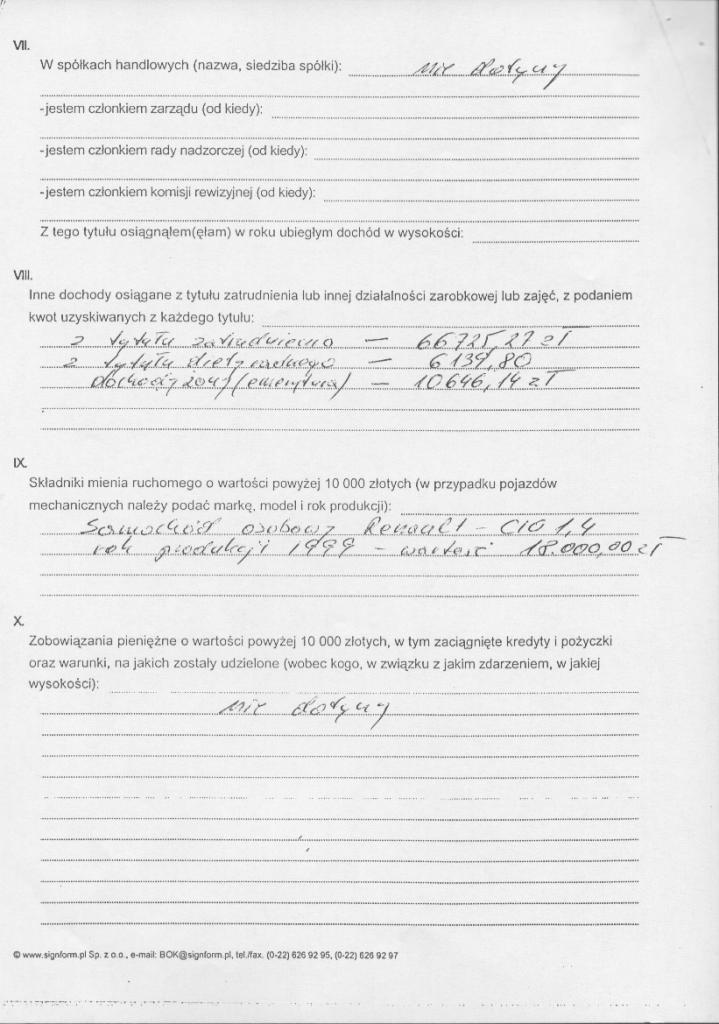 VII.
W spółkach handlowych (nazwa, siedziba spółki): nie dotyczy
-jestem członkiem zarządu (od kiedy):
-jestem członkiem rady nadzorczej (od kiedy):
-jestem członkiem komisji rewizyjnej (od kiedy):
Z tego tytułu osiągnąłem(ęłam) w roku ubiegłym dochód w wysokości:
VIII.
Inne dochody osiągane z tytułu zatrudnienia lub innej działalności zarobkowej lub zajęć, z podaniem
kwot uzyskiwanych z każdego tytułu:
z tytułu zatrudnienia — 66725,27 zł
z tytułu diety radnego — 6139,80
dochody żony (emerytura) — 10646,14 zł
IX.
Składniki mienia ruchomego o wartości powyżej 10 000 złotych (w przypadku pojazdów
mechanicznych należy podać markę, model i rok produkcji):
Samochód osobowy Renault - Clio 1,4
rok produkcji 1999 - wartość 18.000,00 zł
X.
Zobowiązania pieniężne o wartości powyżej 10 000 złotych, w tym zaciągnięte kredyty i pożyczki
oraz warunki, na jakich zostały udzielone (wobec kogo, w związku z jakim zdarzeniem, w jakiej
wysokości):
nie dotyczy
© www.signform.pl Sp. z o.o., e-mail: BOK@signform.pl, tel./fax. (0-22) 626 92 95, (0-22) 626 92 97